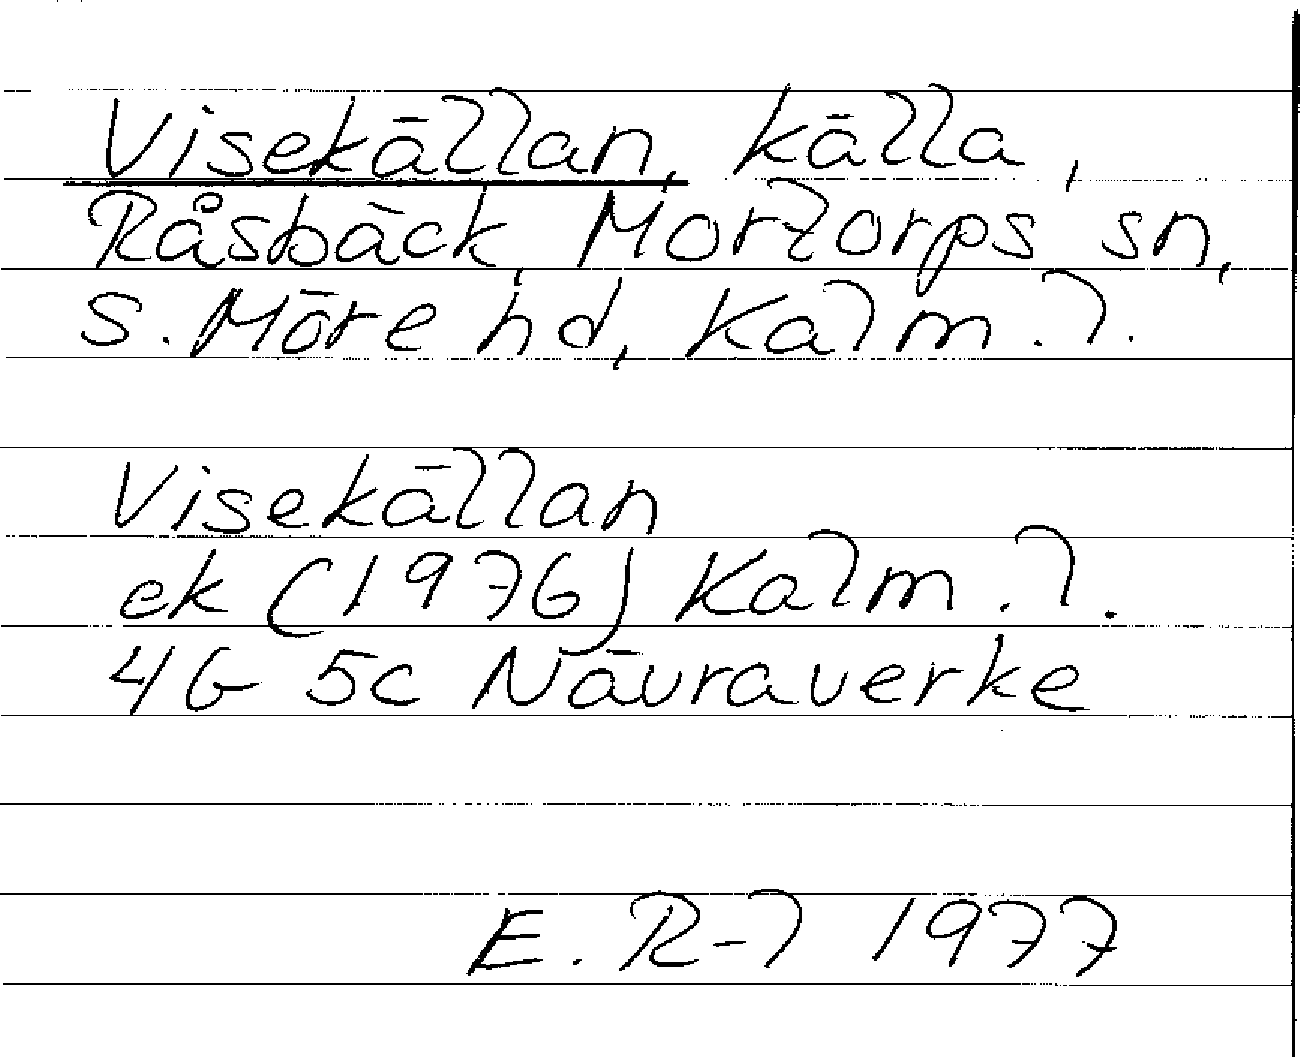 Visekällan, källa,
Råsbäck, Mortorps sn,
S. Möre hd, Kalm. l.
Visekällan
ek (1976) Kalm. l.
4G 5c Nävraverke
E. R-l 1977